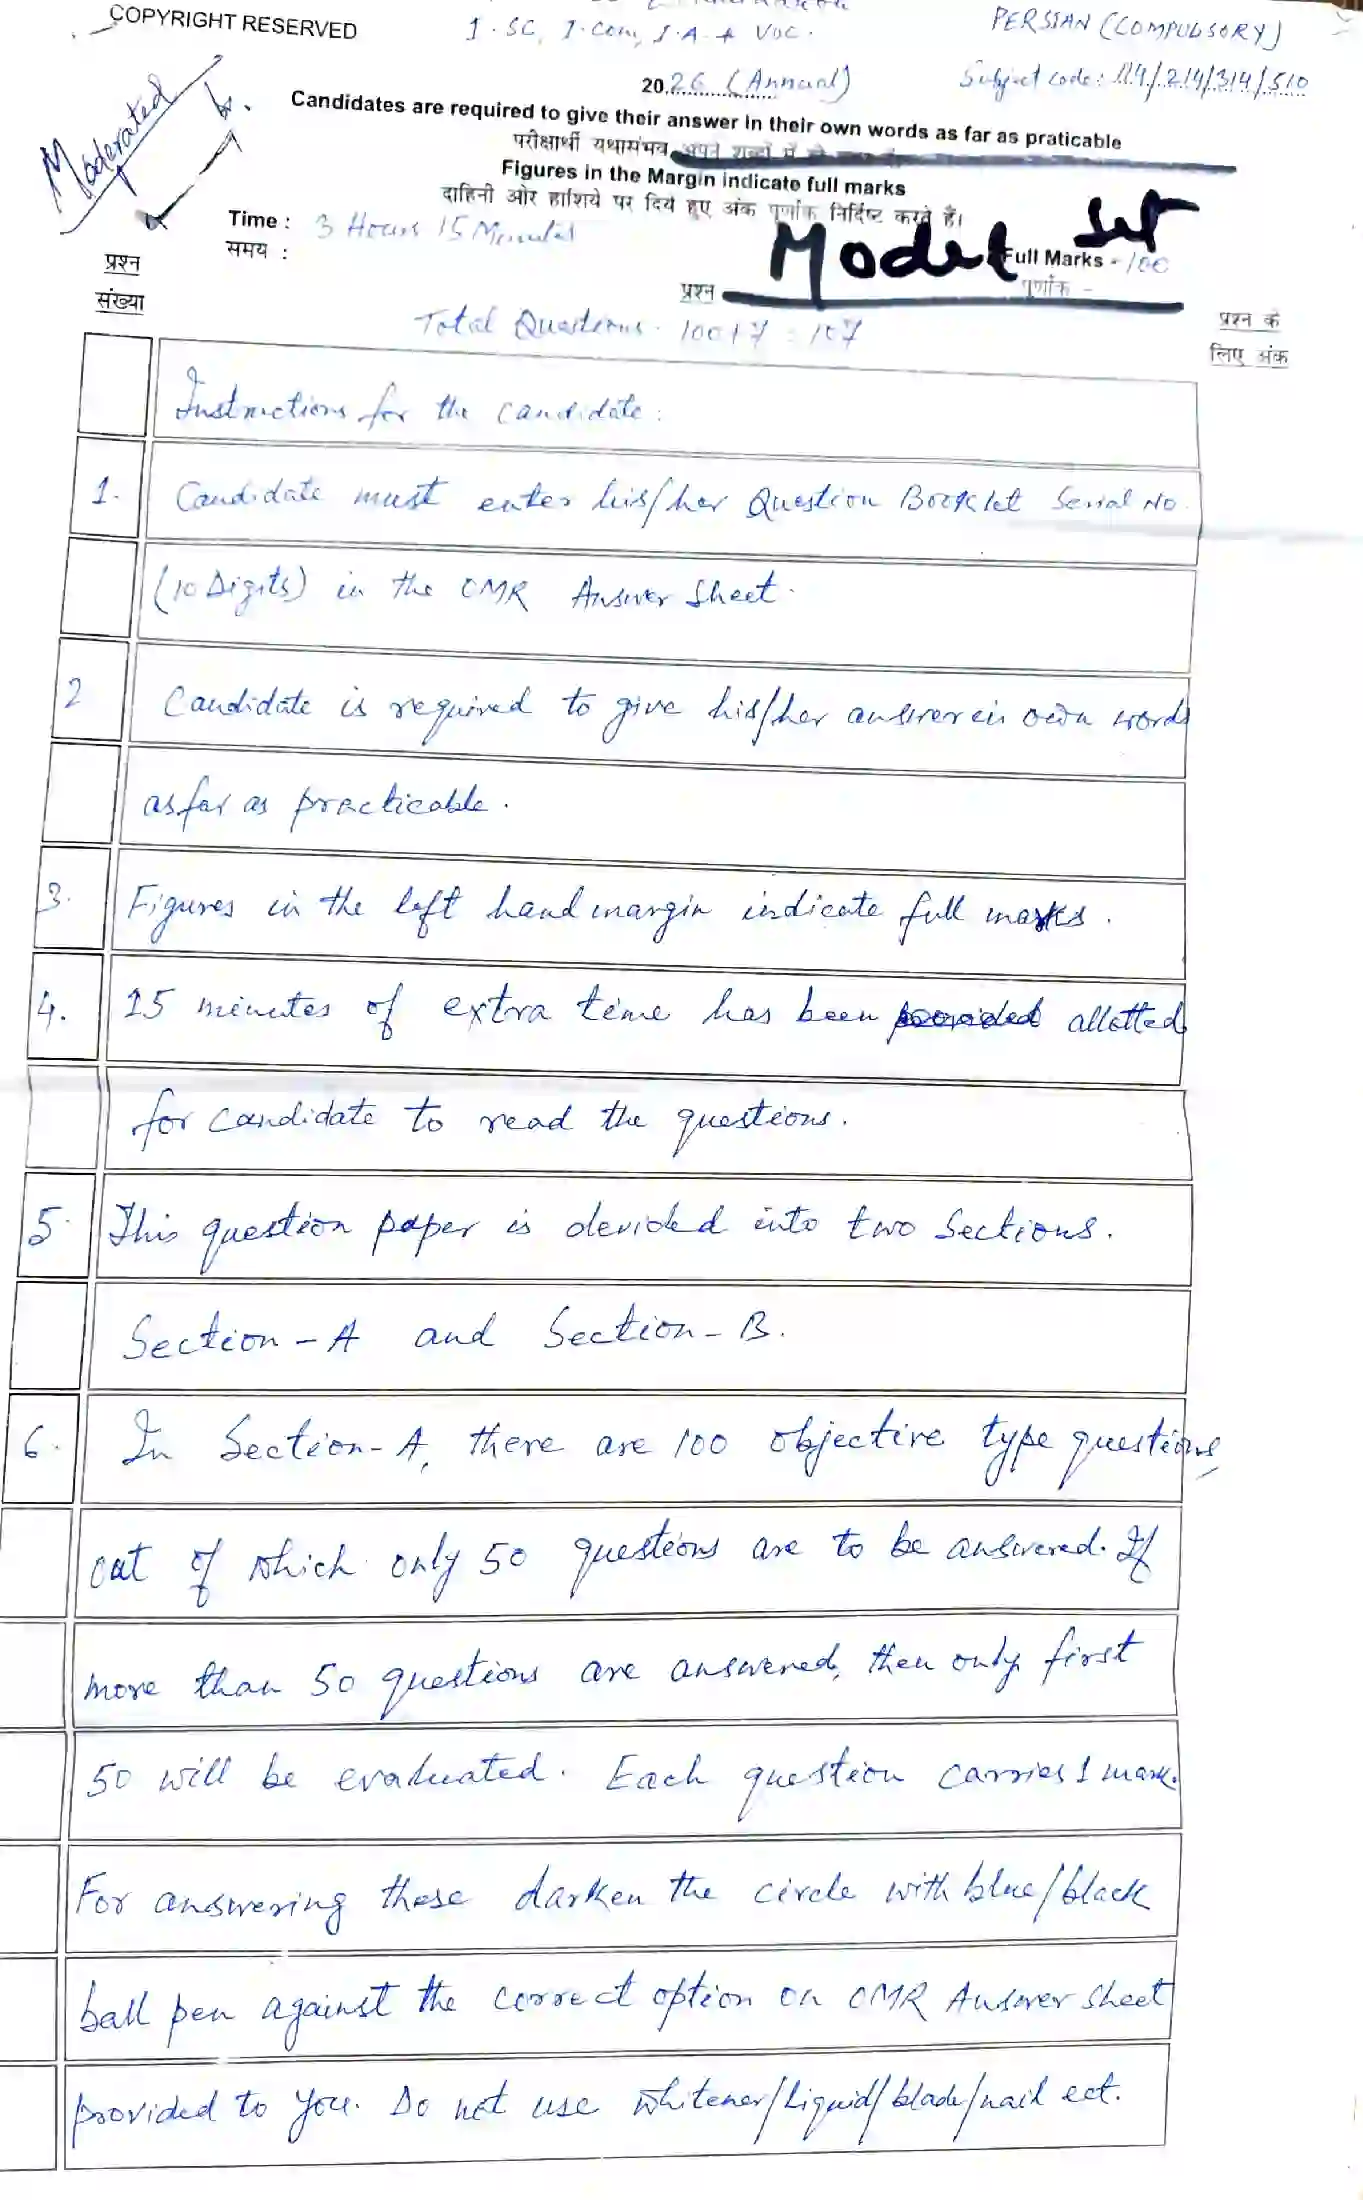 COPYRIGHT RESERVED
I.SC, I.Com, I.A. + VOC.
PERSIAN (COMPULSORY)
2026 (Annual)
Subject code: 114/214/314/510
Moderated
Candidates are required to give their answer in their own words as far as praticable
परीक्षार्थी यथासंभव अपने शब्दों में
Figures in the Margin indicate full marks
दाहिनी ओर हाशिये पर दिये हुए अंक पूर्णांक निर्दिष्ट करते हैं।
Time : 3 Hours 15 Minutes
समय :
Model Set
Full Marks - 100
पूर्णांक -
प्रश्न
संख्या
प्रश्न
Total Questions. 100+7 = 107
प्रश्न के
लिए अंक
Instructions for the candidate:
1. Candidate must enter his/her Question Booklet Serial No.
(10 Digits) in the OMR Answer Sheet.
2 Candidate is required to give his/her answer in own words
as far as practicable.
3. Figures in the left hand margin indicate full marks.
4. 15 minutes of extra time has been provided allotted
for candidate to read the questions.
5. This question paper is devided into two Sections.
Section-A and Section-B.
6. In Section-A, there are 100 objective type questions,
out of which only 50 questions are to be answered. If
more than 50 questions are answered, then only first
50 will be evaluated. Each question carries 1 mark.
For answering these darken the circle with blue/black
ball pen against the correct option on OMR Answer Sheet
provided to you. Do not use Whitener/Liquid/blade/nail ect.